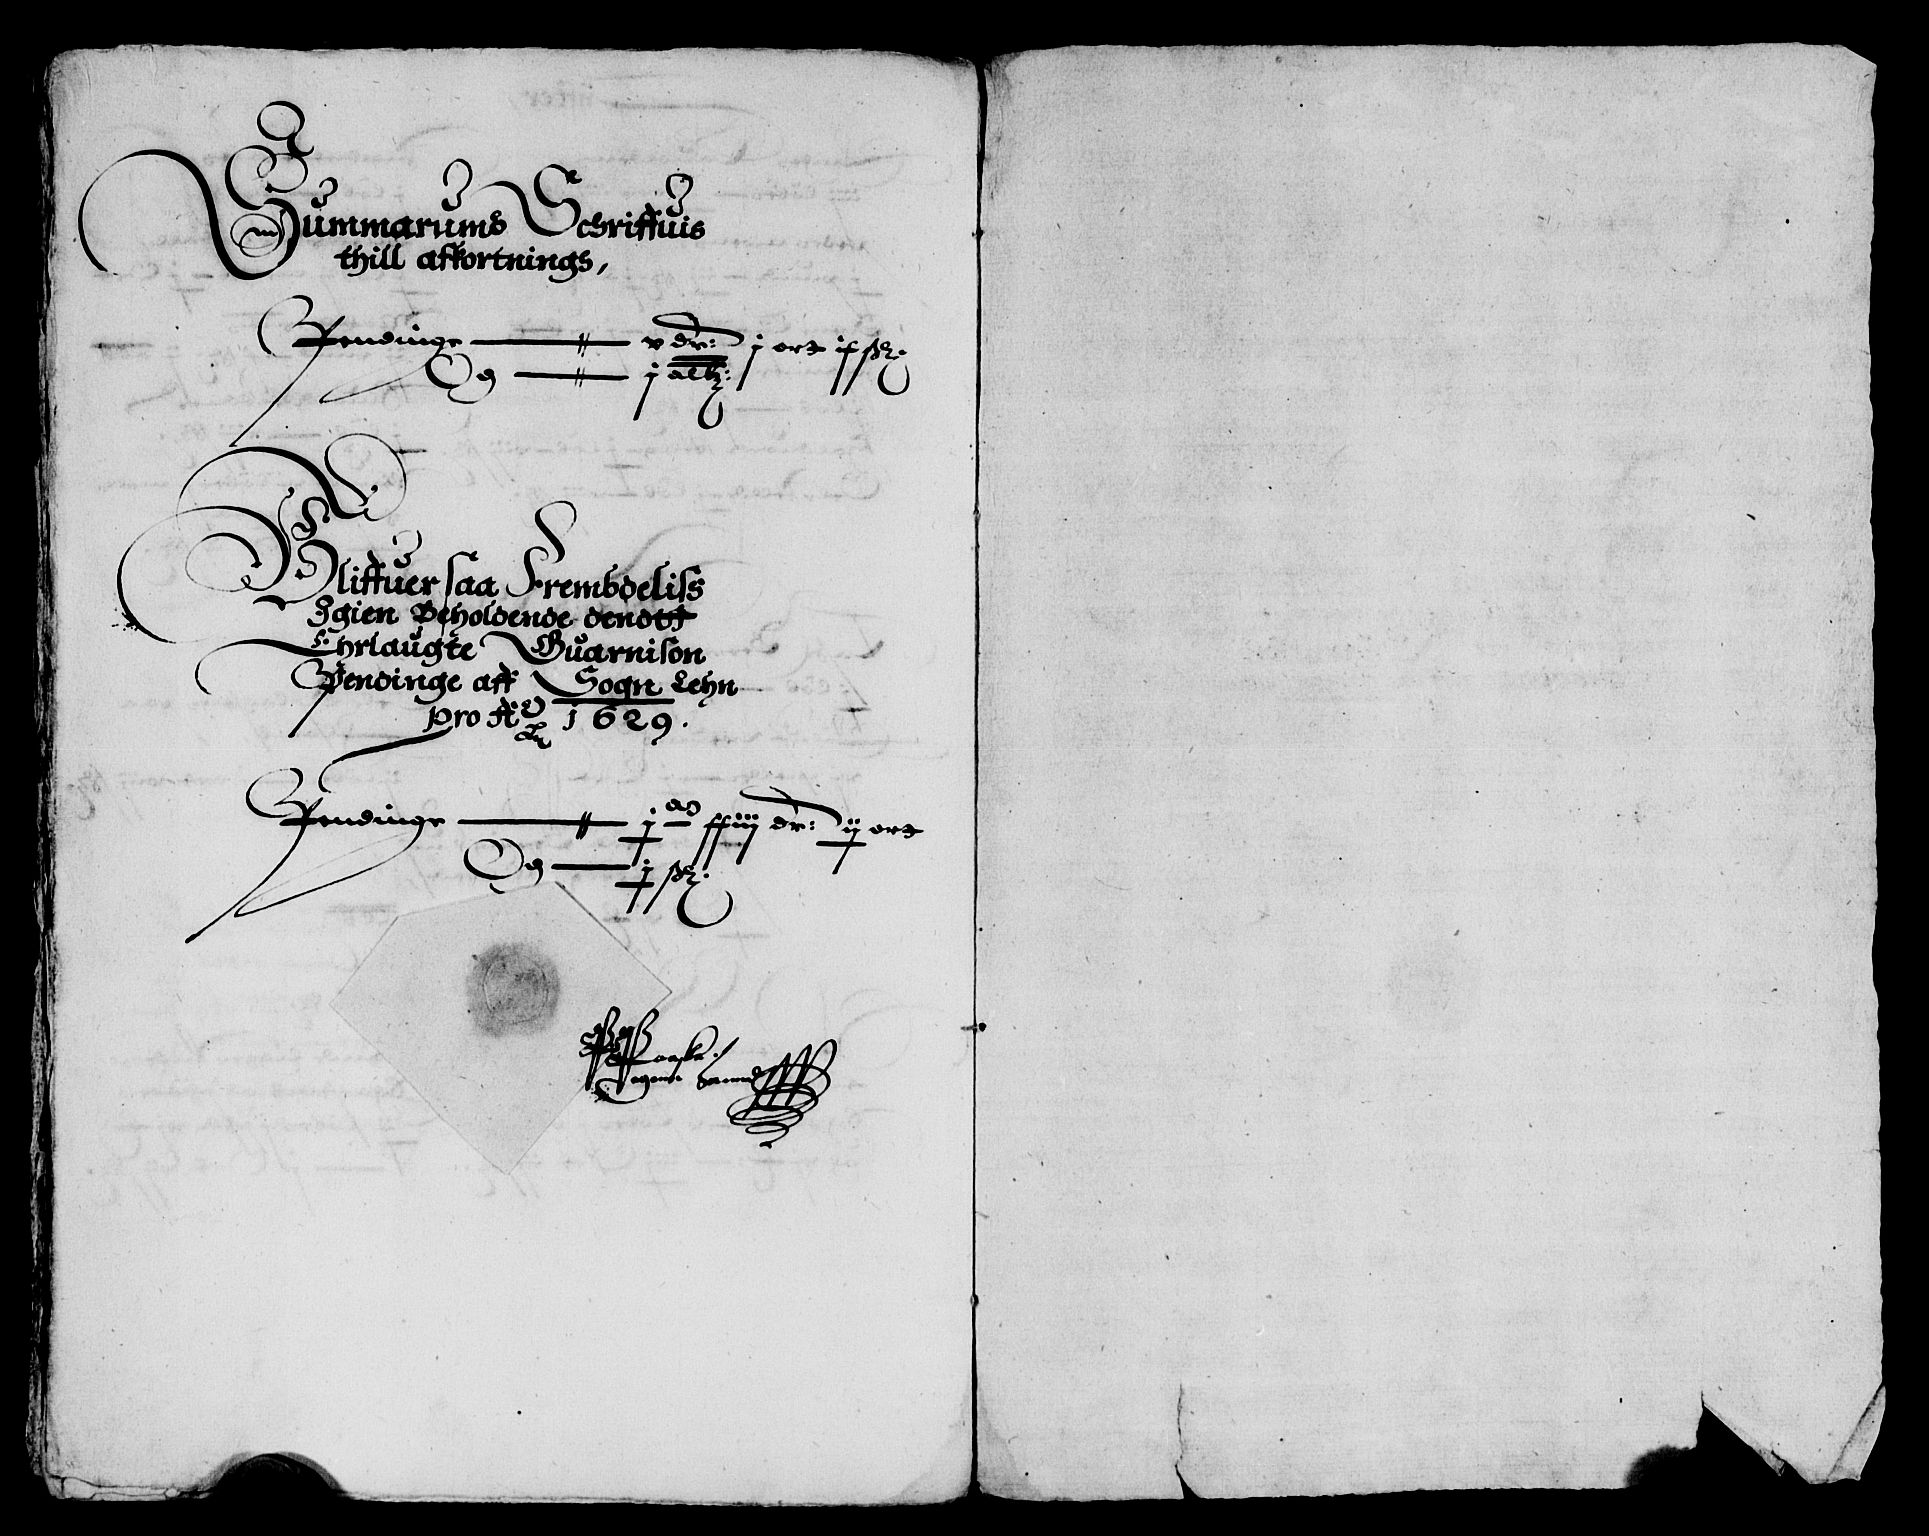 Summarums Schriffuis
thill affkortnings,
Pendinge — v dr: j ort
Og — j alb:
Bliffuer saa Frembdeliss
Igien Beholdende dendtt
Ehrlaugte Guarnison
Pendinge aff Sogn Lehn
pro Ao 1629.
Pendinge — dr: ij ort
Og — j